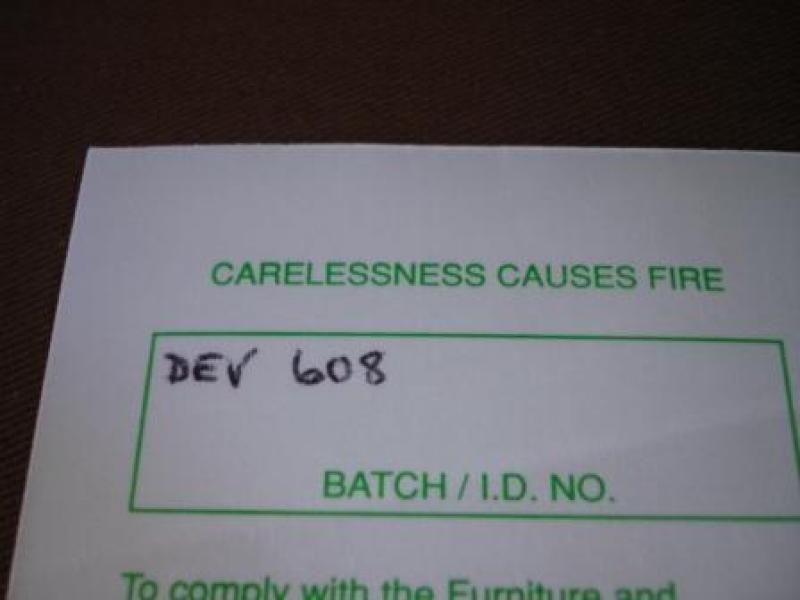 CARELESSNESS CAUSES FIRE
DEV 608
BATCH / I.D. NO.
To comply with the Furniture and